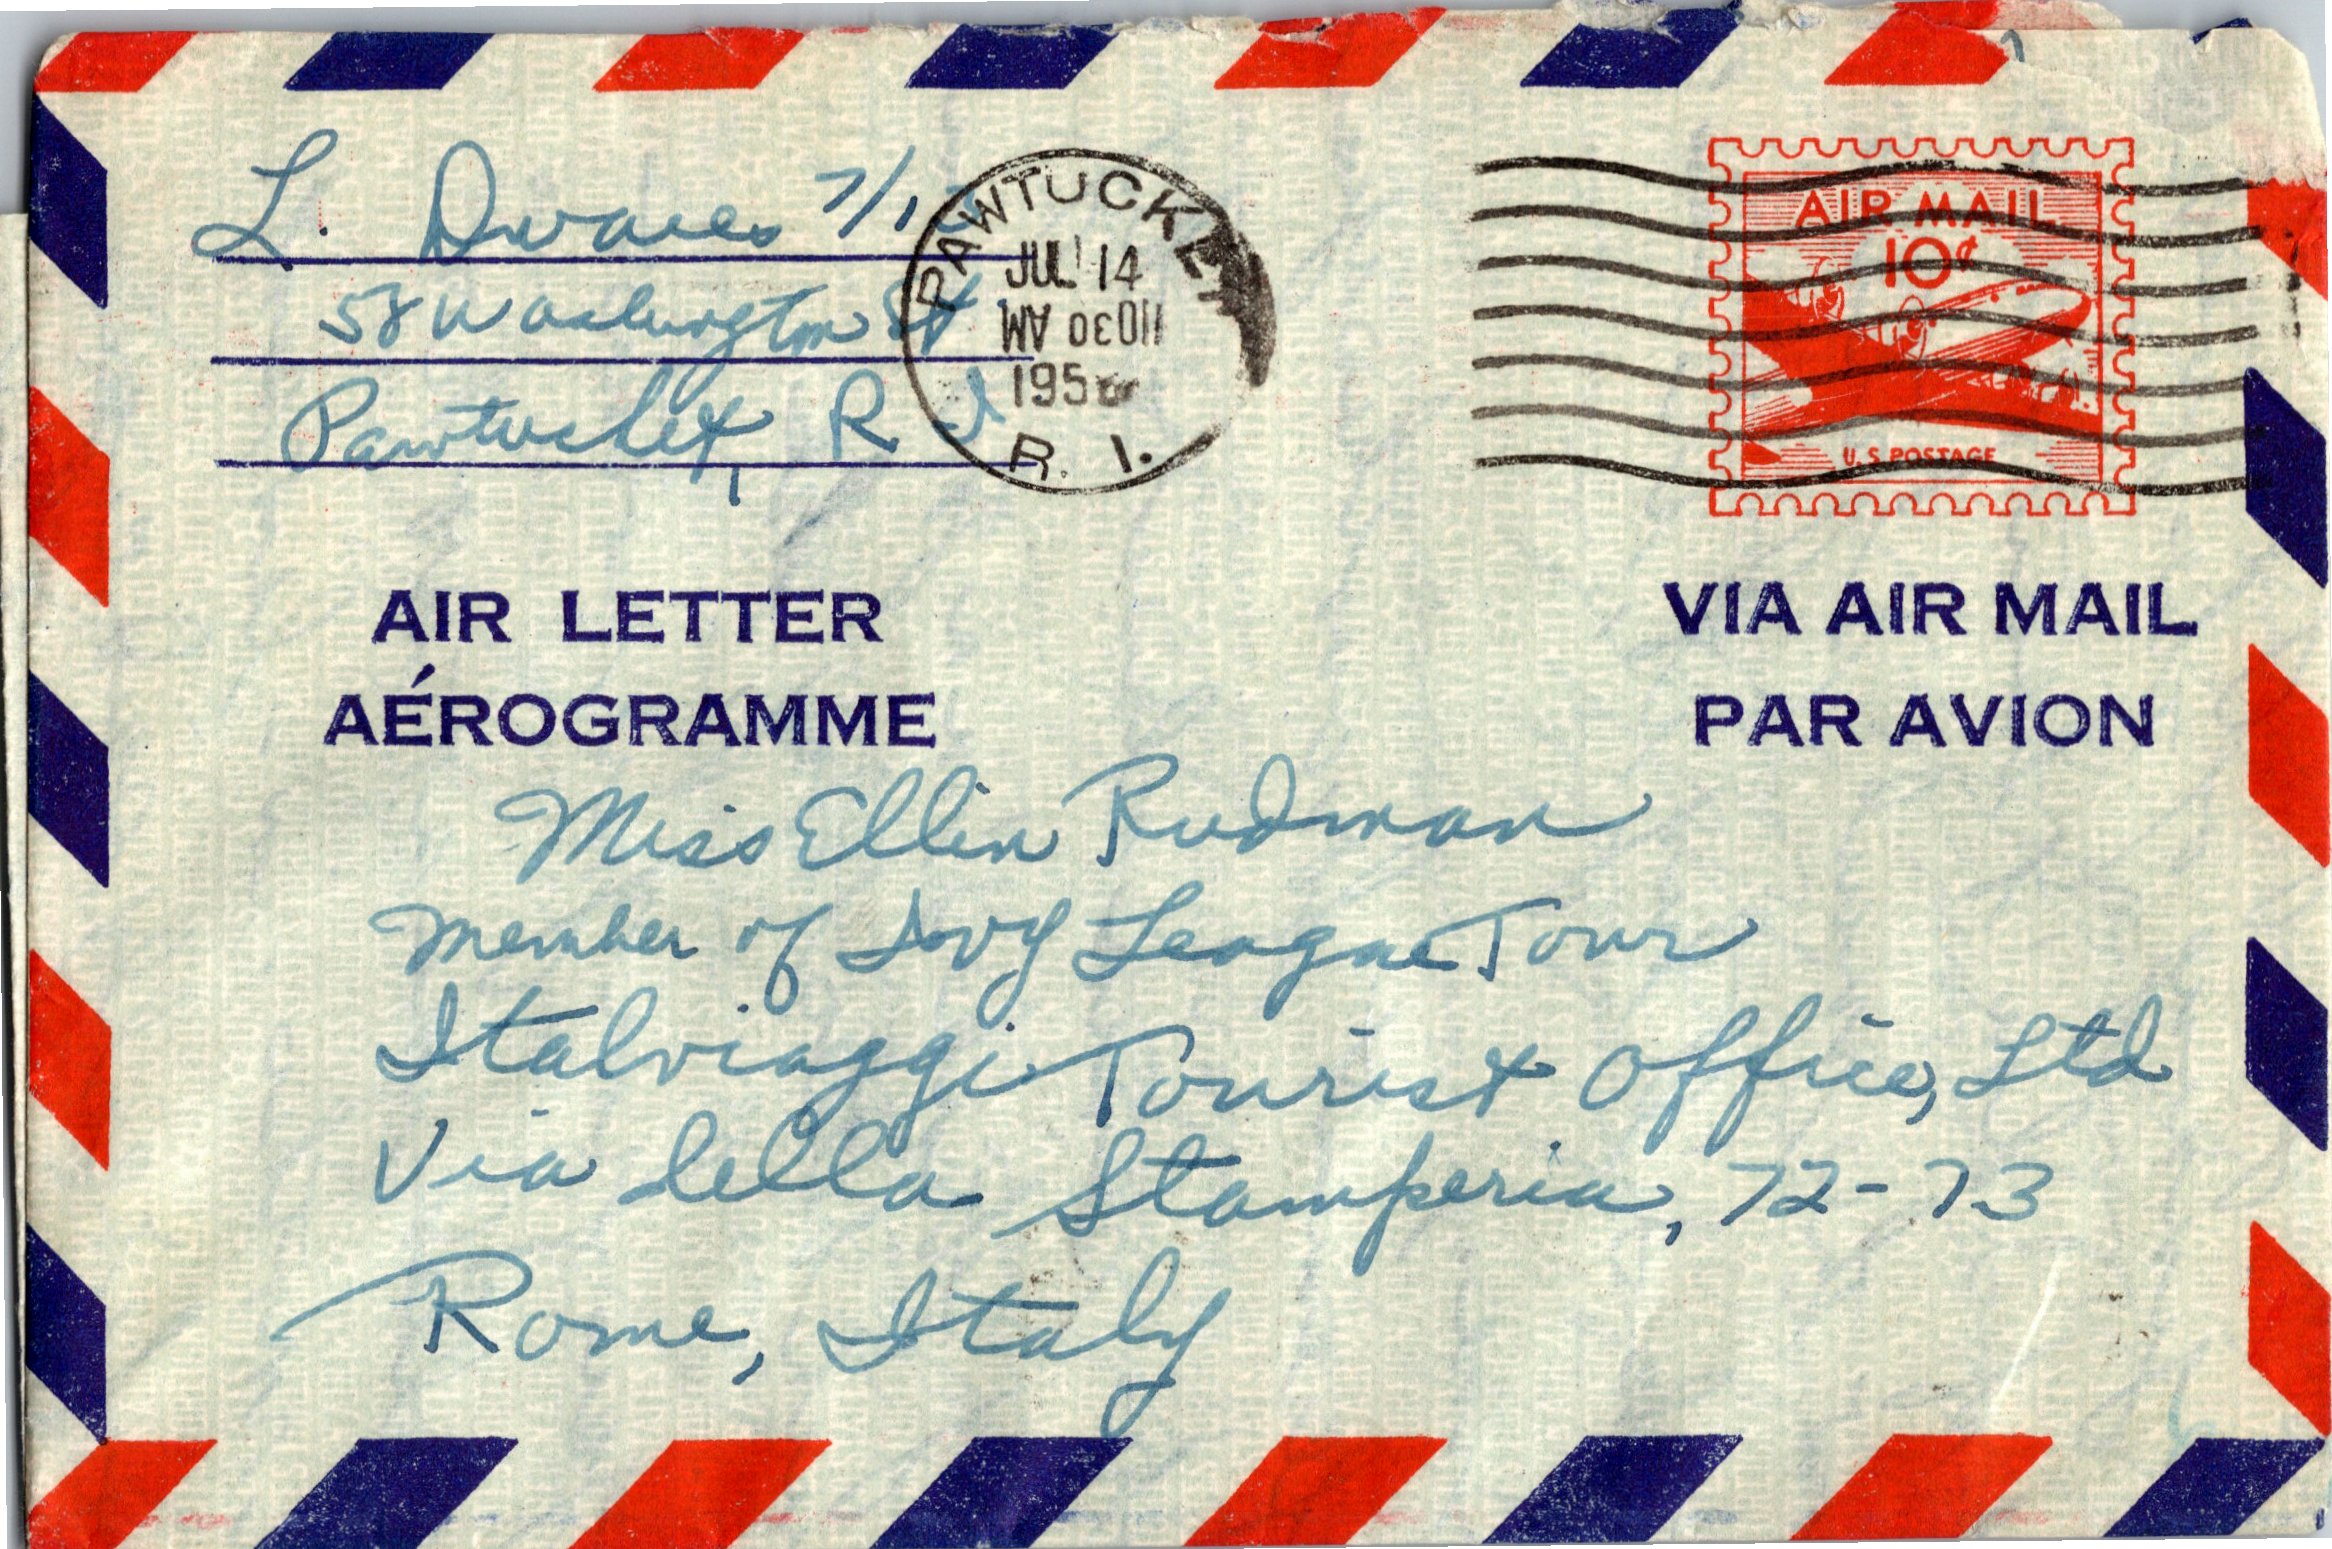 L. Dwares 7/1
58 Washington St
Pawtucket, R I
PAWTUCKET
JUL 14
1030 AM
195
R. I.
AIR MAIL
10¢
U.S. POSTAGE
AIR LETTER
AÉROGRAMME
VIA AIR MAIL
PAR AVION
Miss Ellin Rudman
member of Ivy League Tour
Italviaggi Tourist Office, Ltd
Via della Stamperia, 72-73
Rome, Italy